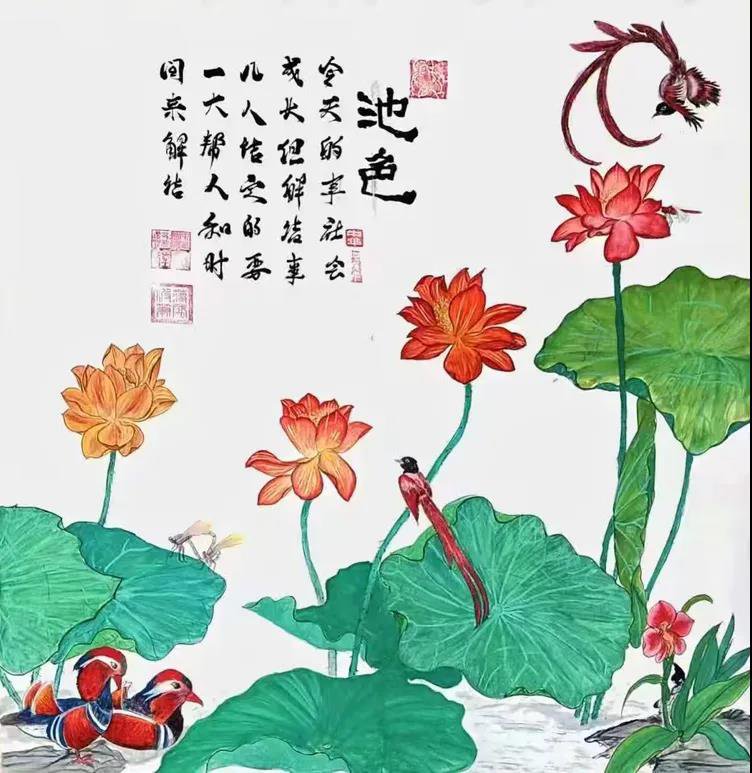 池色
全天的事社会
成长但解结事
几人结定的要
一大帮人和时
间来解结